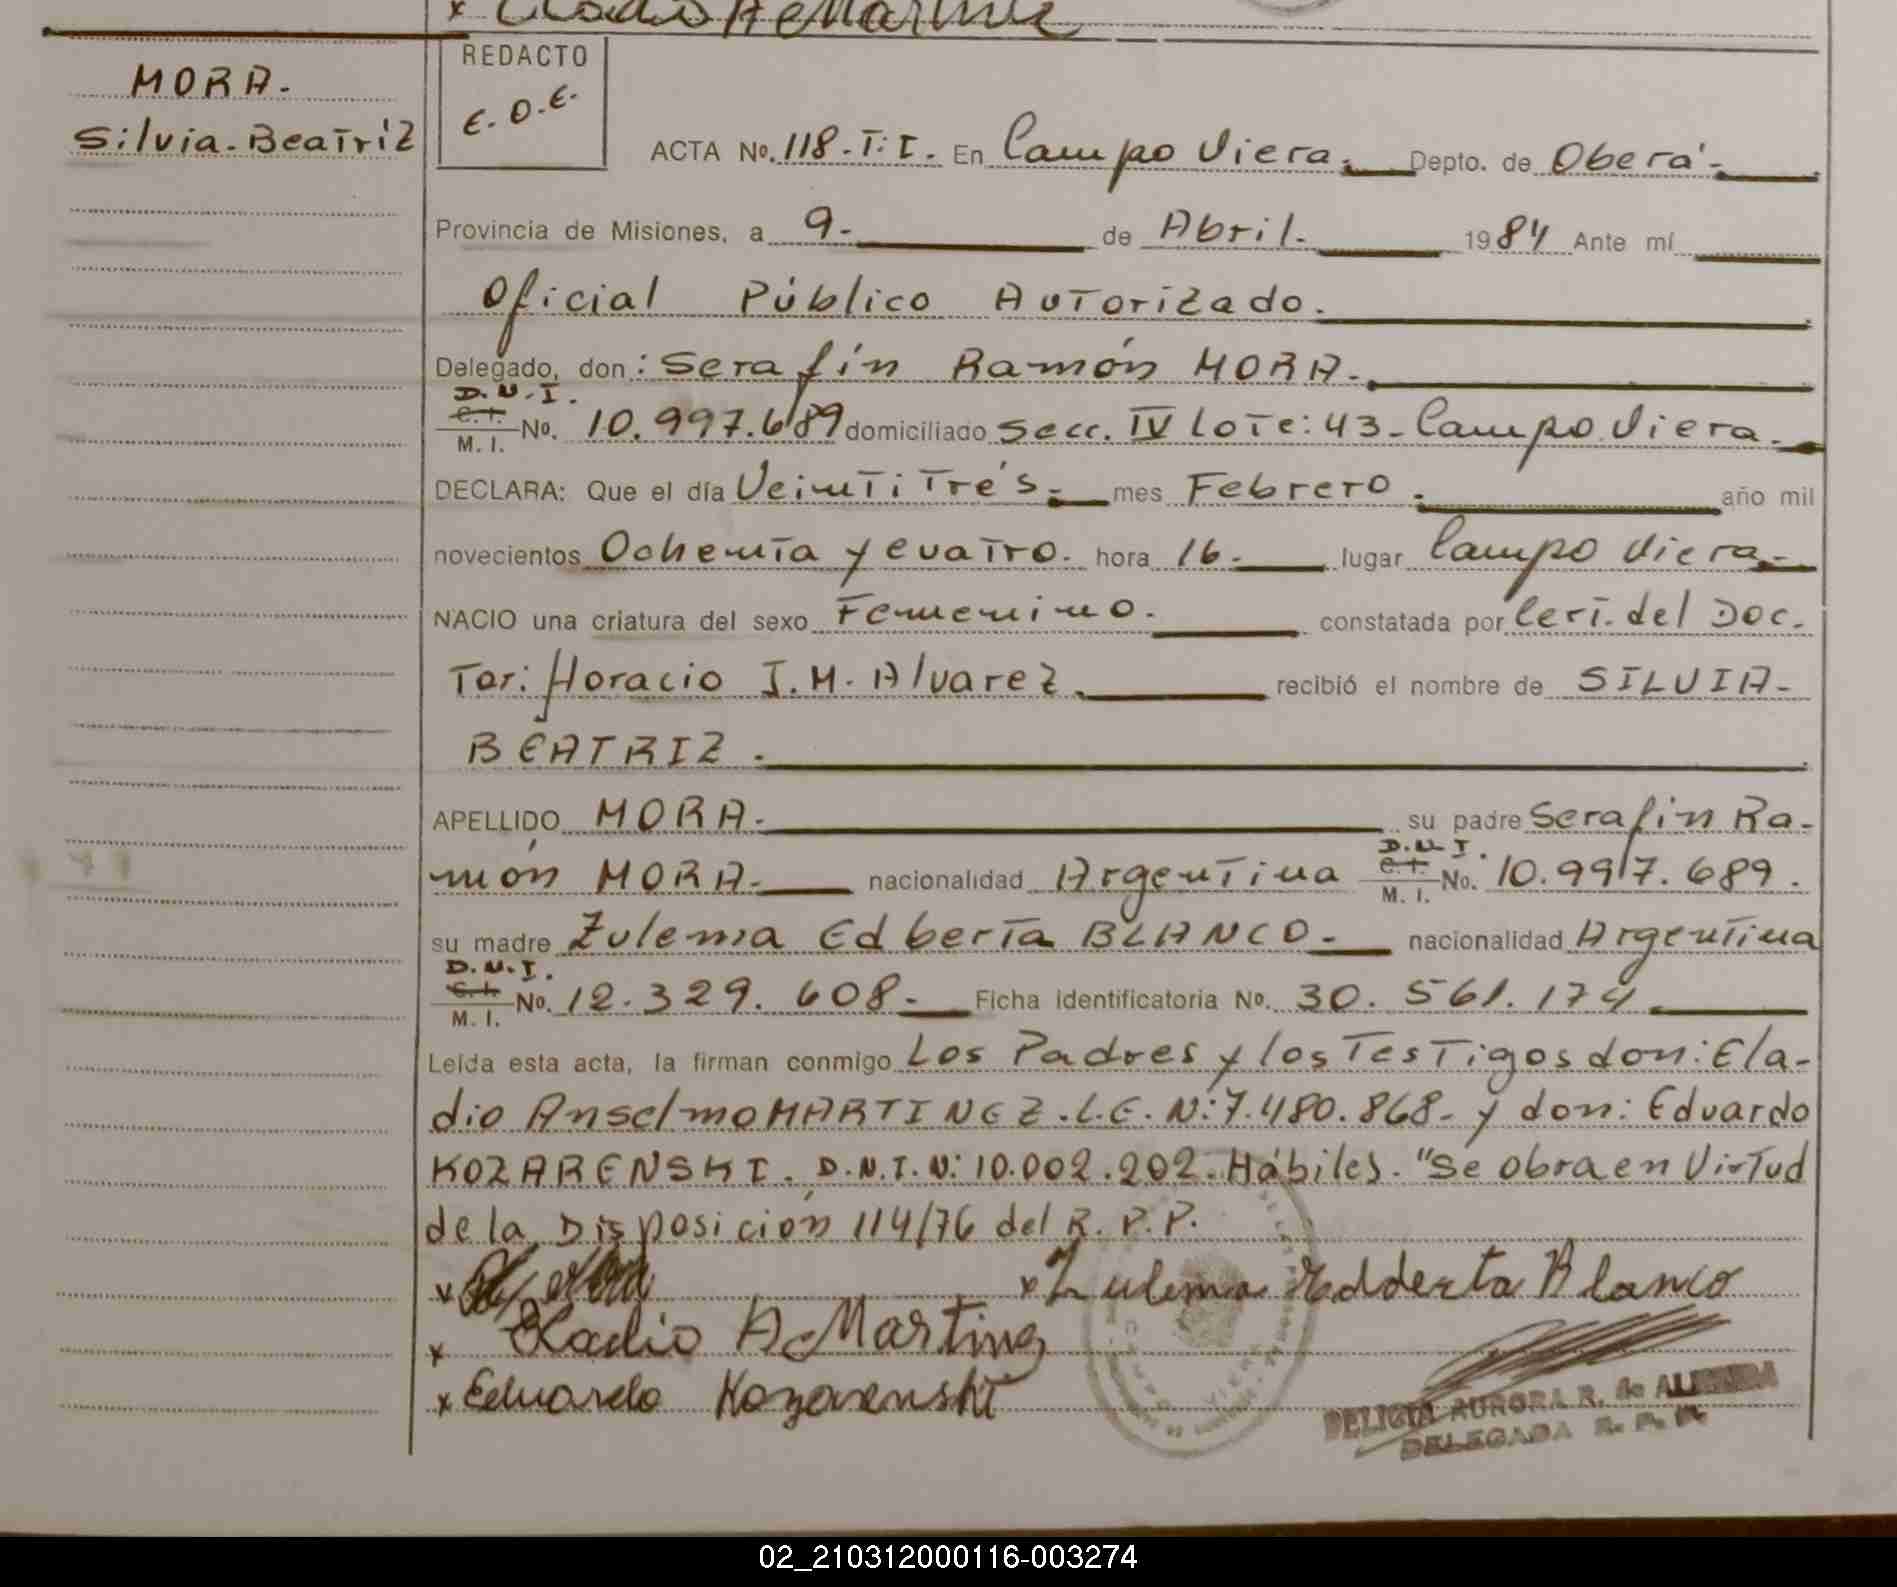 x Eladio A Martinez
MORA.
Silvia-Beatriz
REDACTO
E.O.E.
ACTA No. 118.T:I. En Campo Viera. Depto. de Oberá.
Provincia de Misiones, a 9. de Abril. 1984 Ante mí
Oficial Público Autorizado.
Delegado, don: Serafín Ramón MORA.
D.N.I.
C.I. No. 10.997.689 domiciliado Secc. IV Lote: 43- Campo Viera.
M. I.
DECLARA: Que el día Veintitrés. mes Febrero. año mil
novecientos Ochenta y cuatro. hora 16. lugar Campo Viera.
NACIO una criatura del sexo Femenino. constatada por Cert. del Doc.
Tor: Horacio J.M. Alvarez. recibió el nombre de SILVIA-
BEATRIZ.
APELLIDO MORA. su padre Serafin Ra-
món MORA. nacionalidad Argentina
D.N.I.
C.I. No. 10.997.689.
M. I.
su madre Zulema Edberta BLANCO. nacionalidad Argentina
D.N.I.
C.I. No. 12.329.608. Ficha identificatoria No. 30.561.174
M. I.
Leída esta acta, la firman conmigo Los Padres y los Testigos don: Ela-
dio Anselmo MARTINEZ. L.E. N: 7.480.868- y don: Eduardo
KOZARENSKI. D.N.I. N: 10.002.202. Hábiles. "Se obra en Virtud
de la Disposición 114/76 del R.P.P.
x Zulema Edderta Blanco
x Eladio A Martinez
x Eduardo Kozarenski
DELICIA AURORA R. de ALMEIDA
DELEGADA R. P. P.
02_210312000116-003274